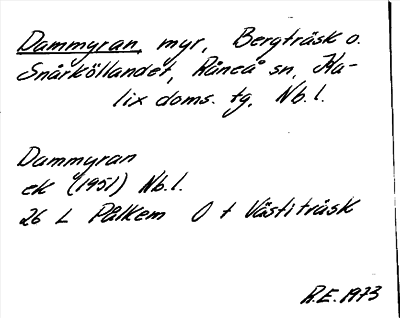 Dammyran, myr, Bergträsk o.
Snårköllandet, Råneå sn, Ka-
lix doms. tg, Nb. l.
Dammyran
ek (1951) Nb. l.
26 L Pålkem O t Västiträsk
R.E. 1973